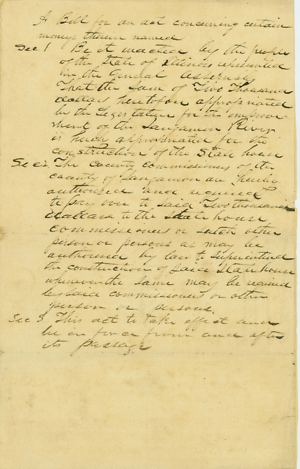 A Bill for an act concerning certain
moneys therein named
Sec 1 Be it enacted by the people
of the State of Illinois represented
in the General Assembly
That the sum of Two Thousand
dollars heretofore appropriated
by the Legislature for the improve
ment of the Sangamon River
is hereby appropriated for the
construction of the State house
Sec 2 The County commissioners of the
county of Sangamon are hereby
authorized and required
to pay over to said Two thousand
dollars to the State house
commissioners or such other
person or persons as may be
authorized by law to superintend
the construction of said State house
whenever the same may be required
by said commissioners or other
person or persons.
Sec 3 This act to take effect and
be in force from and after
its passage